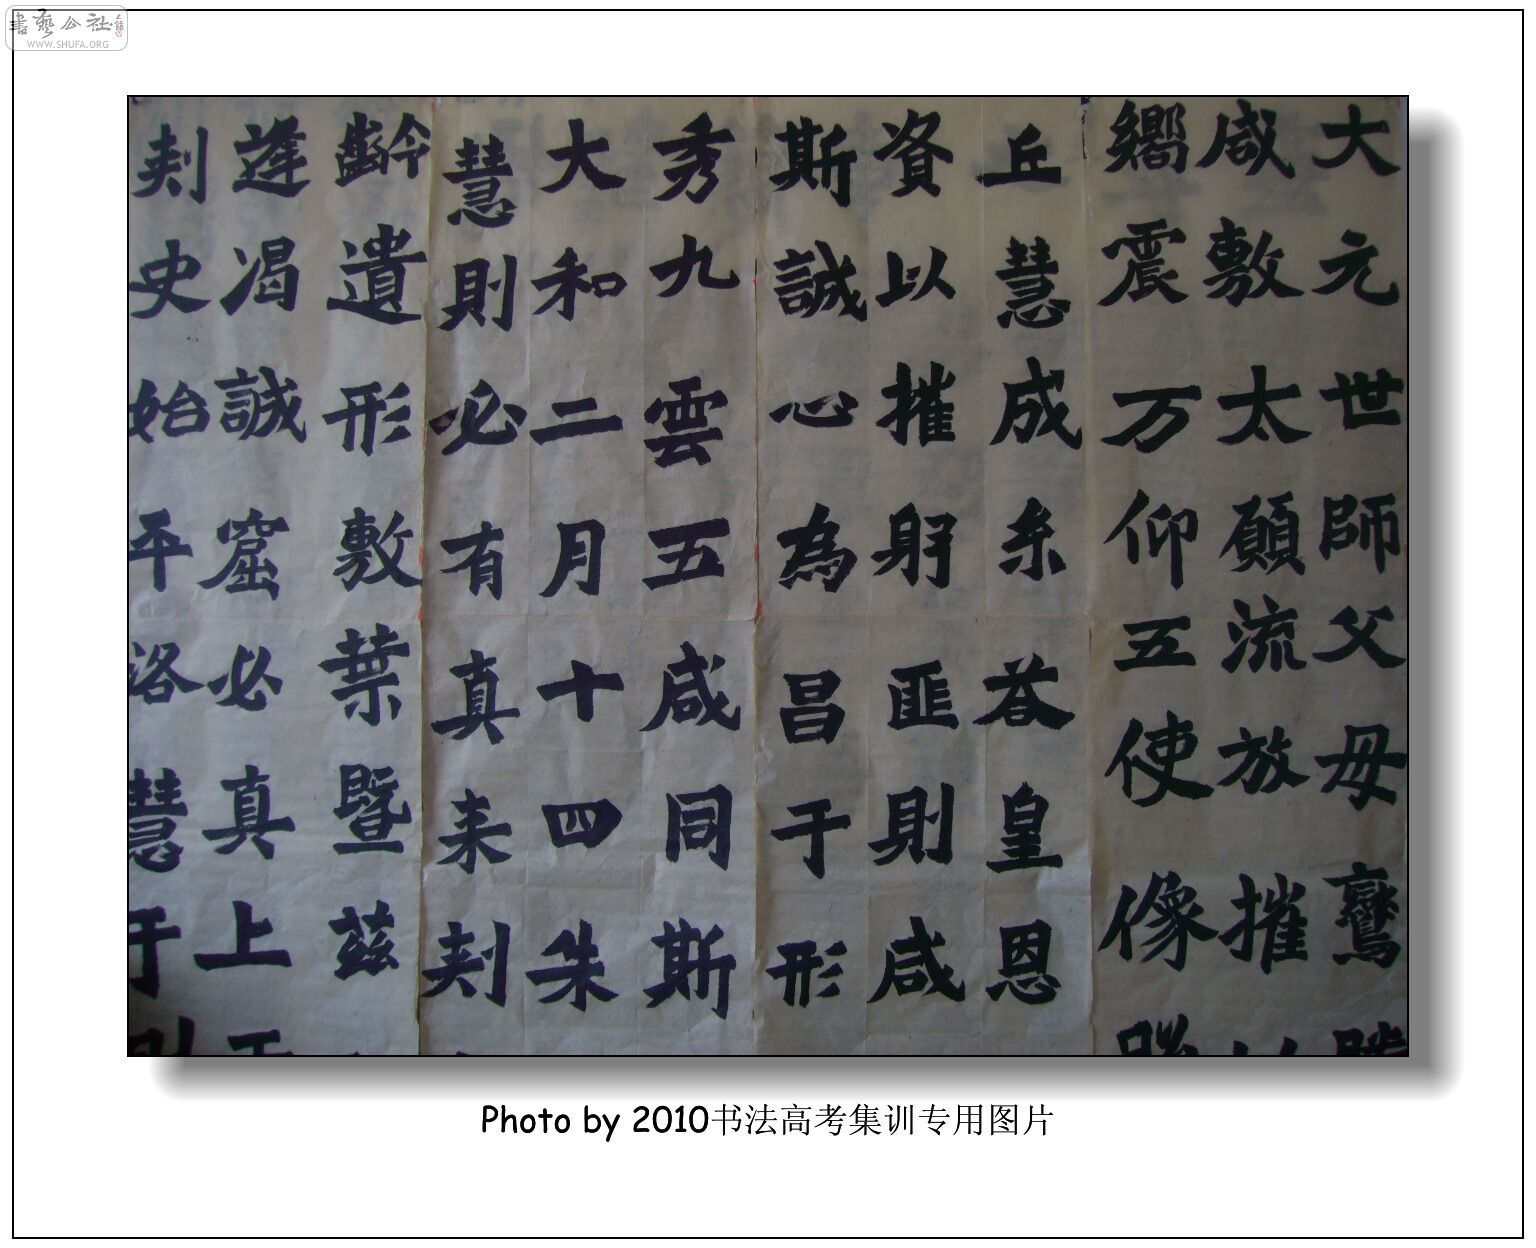 書藝公社
WWW.SHUFA.ORG
大元世師父母鸞
咸敷太願流放摧
嚮震万仰五使像
丘慧成糸答皇恩
資以摧躬匪則咸
斯誠心為昌于形
秀九雲五咸同斯
大和二月十四朱
慧則必有真来刾
齡遺形敷葉暨兹
逢渴誠窟必真上
刾史始平洛慧于
Photo by 2010书法高考集训专用图片